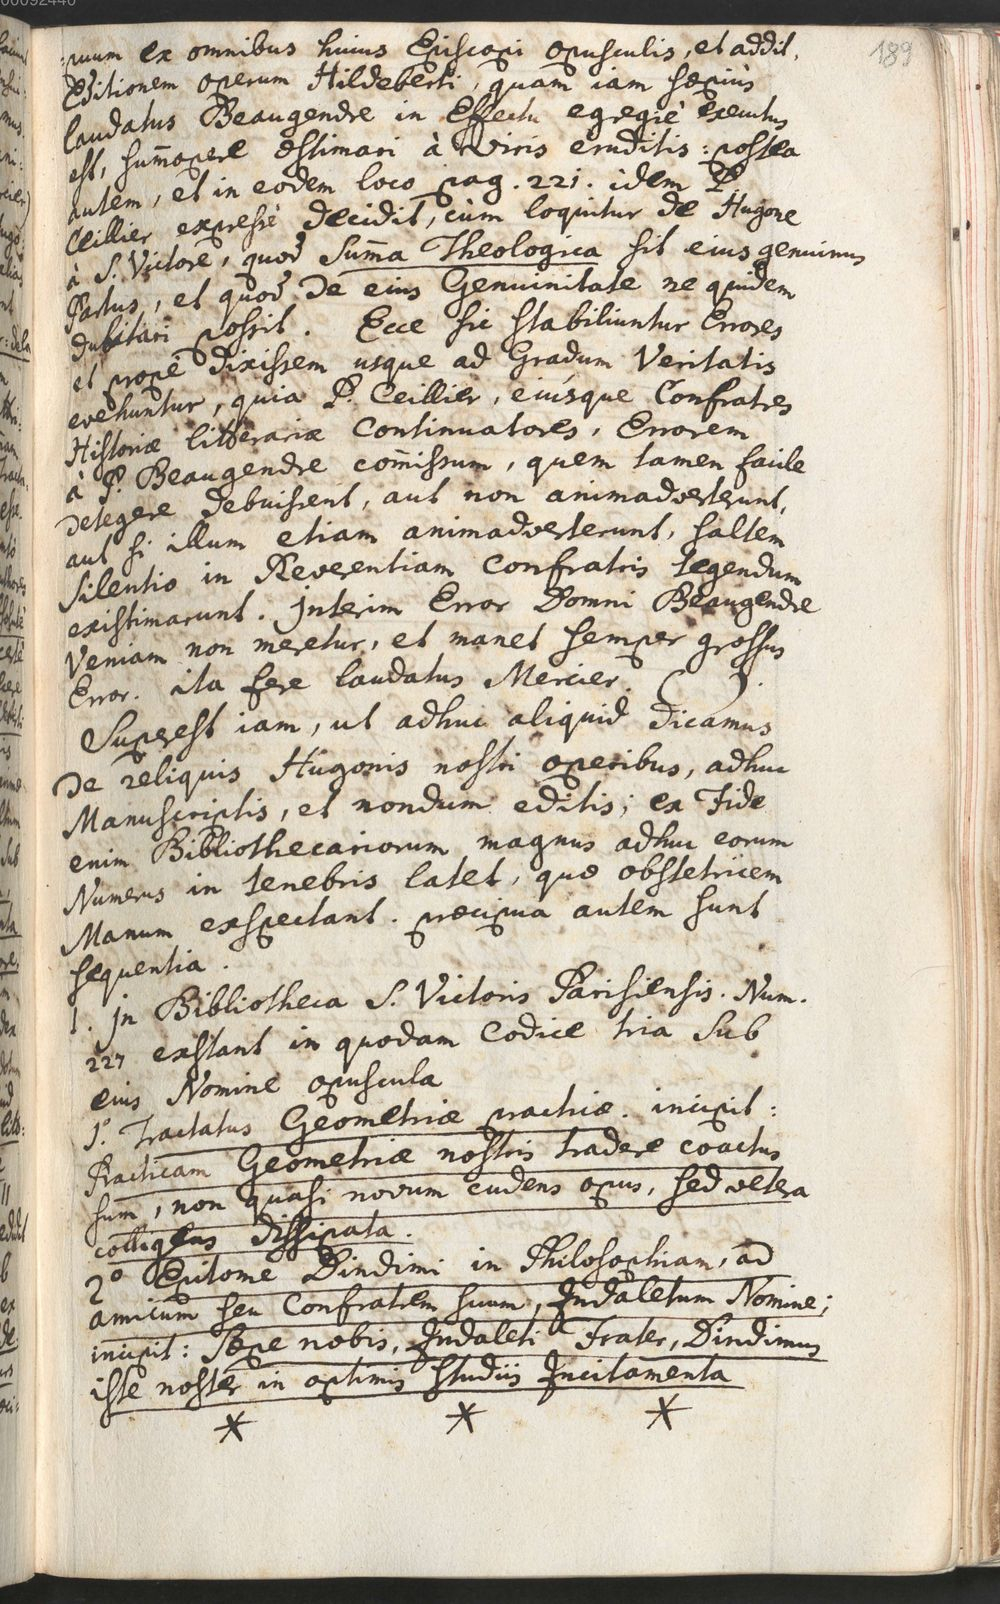 00092440
189
:uum ex omnibus huius Episcopi opusculis, et addit,
Editionem operum Hildeberti, quam iam sæpiùs
laudatus Beaugendre in Effectu egregiè executus
est, sum̄opere æstimari à Viris eruditis: postea
autem, et in eodem loco pag. 221. idem P.
Ceillier expressè decidit, cùm loquitur de Hugone
à S. Victore, quod Sum̄a Theologica sit eius genuinus
Partus, et quod de eius Genuinitate ne quidem
dubitari possit. Ecce sic stabiliuntur Errores
et propè dixissem usque ad Gradum Veritatis
evehuntur, quia P. Ceillier, eiusque Confratres
Historiæ litterariæ Continuatores, Errorem
à P. Beaugendre com̄issum, quem tamen facile
detegere debuissent, aut non animadverterunt,
aut si illum etiam animadverterunt, saltem
Silentio in Reverentiam Confratris tegendum
existimarunt. Interim Error Domni Beaugendre
Veniam non meretur, et manet semper grossus
Error. ita fere laudatus Mercier. ( ).
Superest iam, ut adhuc aliquid dicamus
de reliquis Hugonis nostri operibus, adhuc
Manuscriptis, et nondum editis; ex Fide
enim Bibliothecariorum magnus adhuc eorum
Numerus in tenebris latet, quæ obstetricem
Manum exspectant. præcipua autem sunt
sequentia.
1. In Bibliotheca S. Victoris Parisiensis. Num.
227 exstant in quodam Codice tria sub
eius Nomine opuscula
1º. Tractatus Geometriæ practicæ. incipit:
Practicam Geometriæ nostris tradere coactus
sum, non quasi novum cudens opus, sed vetera
colligens dissipata.
2º Epitome Dindimi in Philosophiam, ad
amicum seu Confratrem suum, Indaletum Nomine;
incipit: Sæpe nobis, Indaleti Frater, Dindimus
iste noster in optimis Studiis Incitamenta
* * *